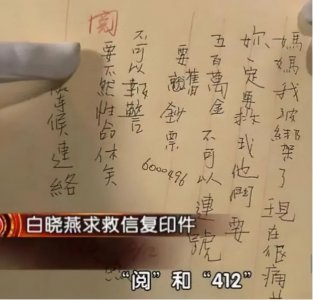 媽媽我被綁架了現在很痛苦
妳一定要救我他們要
五百萬美金不可以連號
要舊鈔票
6000496
不可以報警
要不然性命休矣
等候連絡
閱
白晓燕求救信复印件
“阅”和“412”